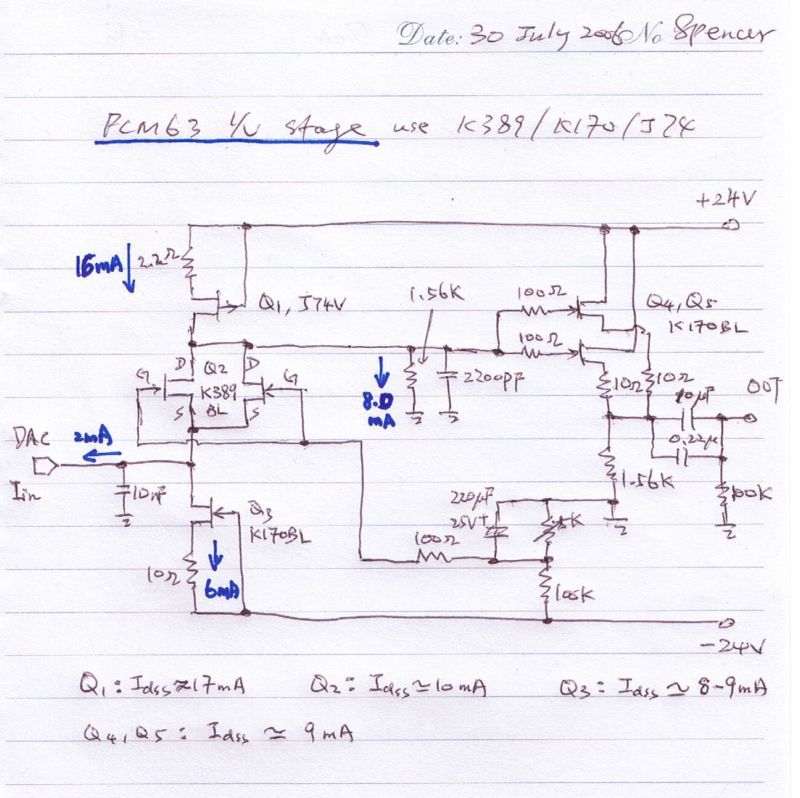 Date: 30 July 2006 No Spencer
PCM63 I/V stage use K389/K170/J74
+24V
16mA
2.2Ω
Q1, J74V
1.56K
100Ω
Q4, Q5
K170BL
100Ω
D
Q2
D
G
K389
BL
G
S
S
8.0
mA
2200pF
10Ω
10Ω
10µF
OUT
0.22µ
DAC
2mA
Iin
10nF
Q3
K170BL
220µF
25V
+
1K
1.56K
100K
100Ω
10Ω
6mA
100K
-24V
Q1: Idss≈17mA
Q2: Idss≃10mA
Q3: Idss ≃ 8-9mA
Q4, Q5: Idss ≃ 9mA